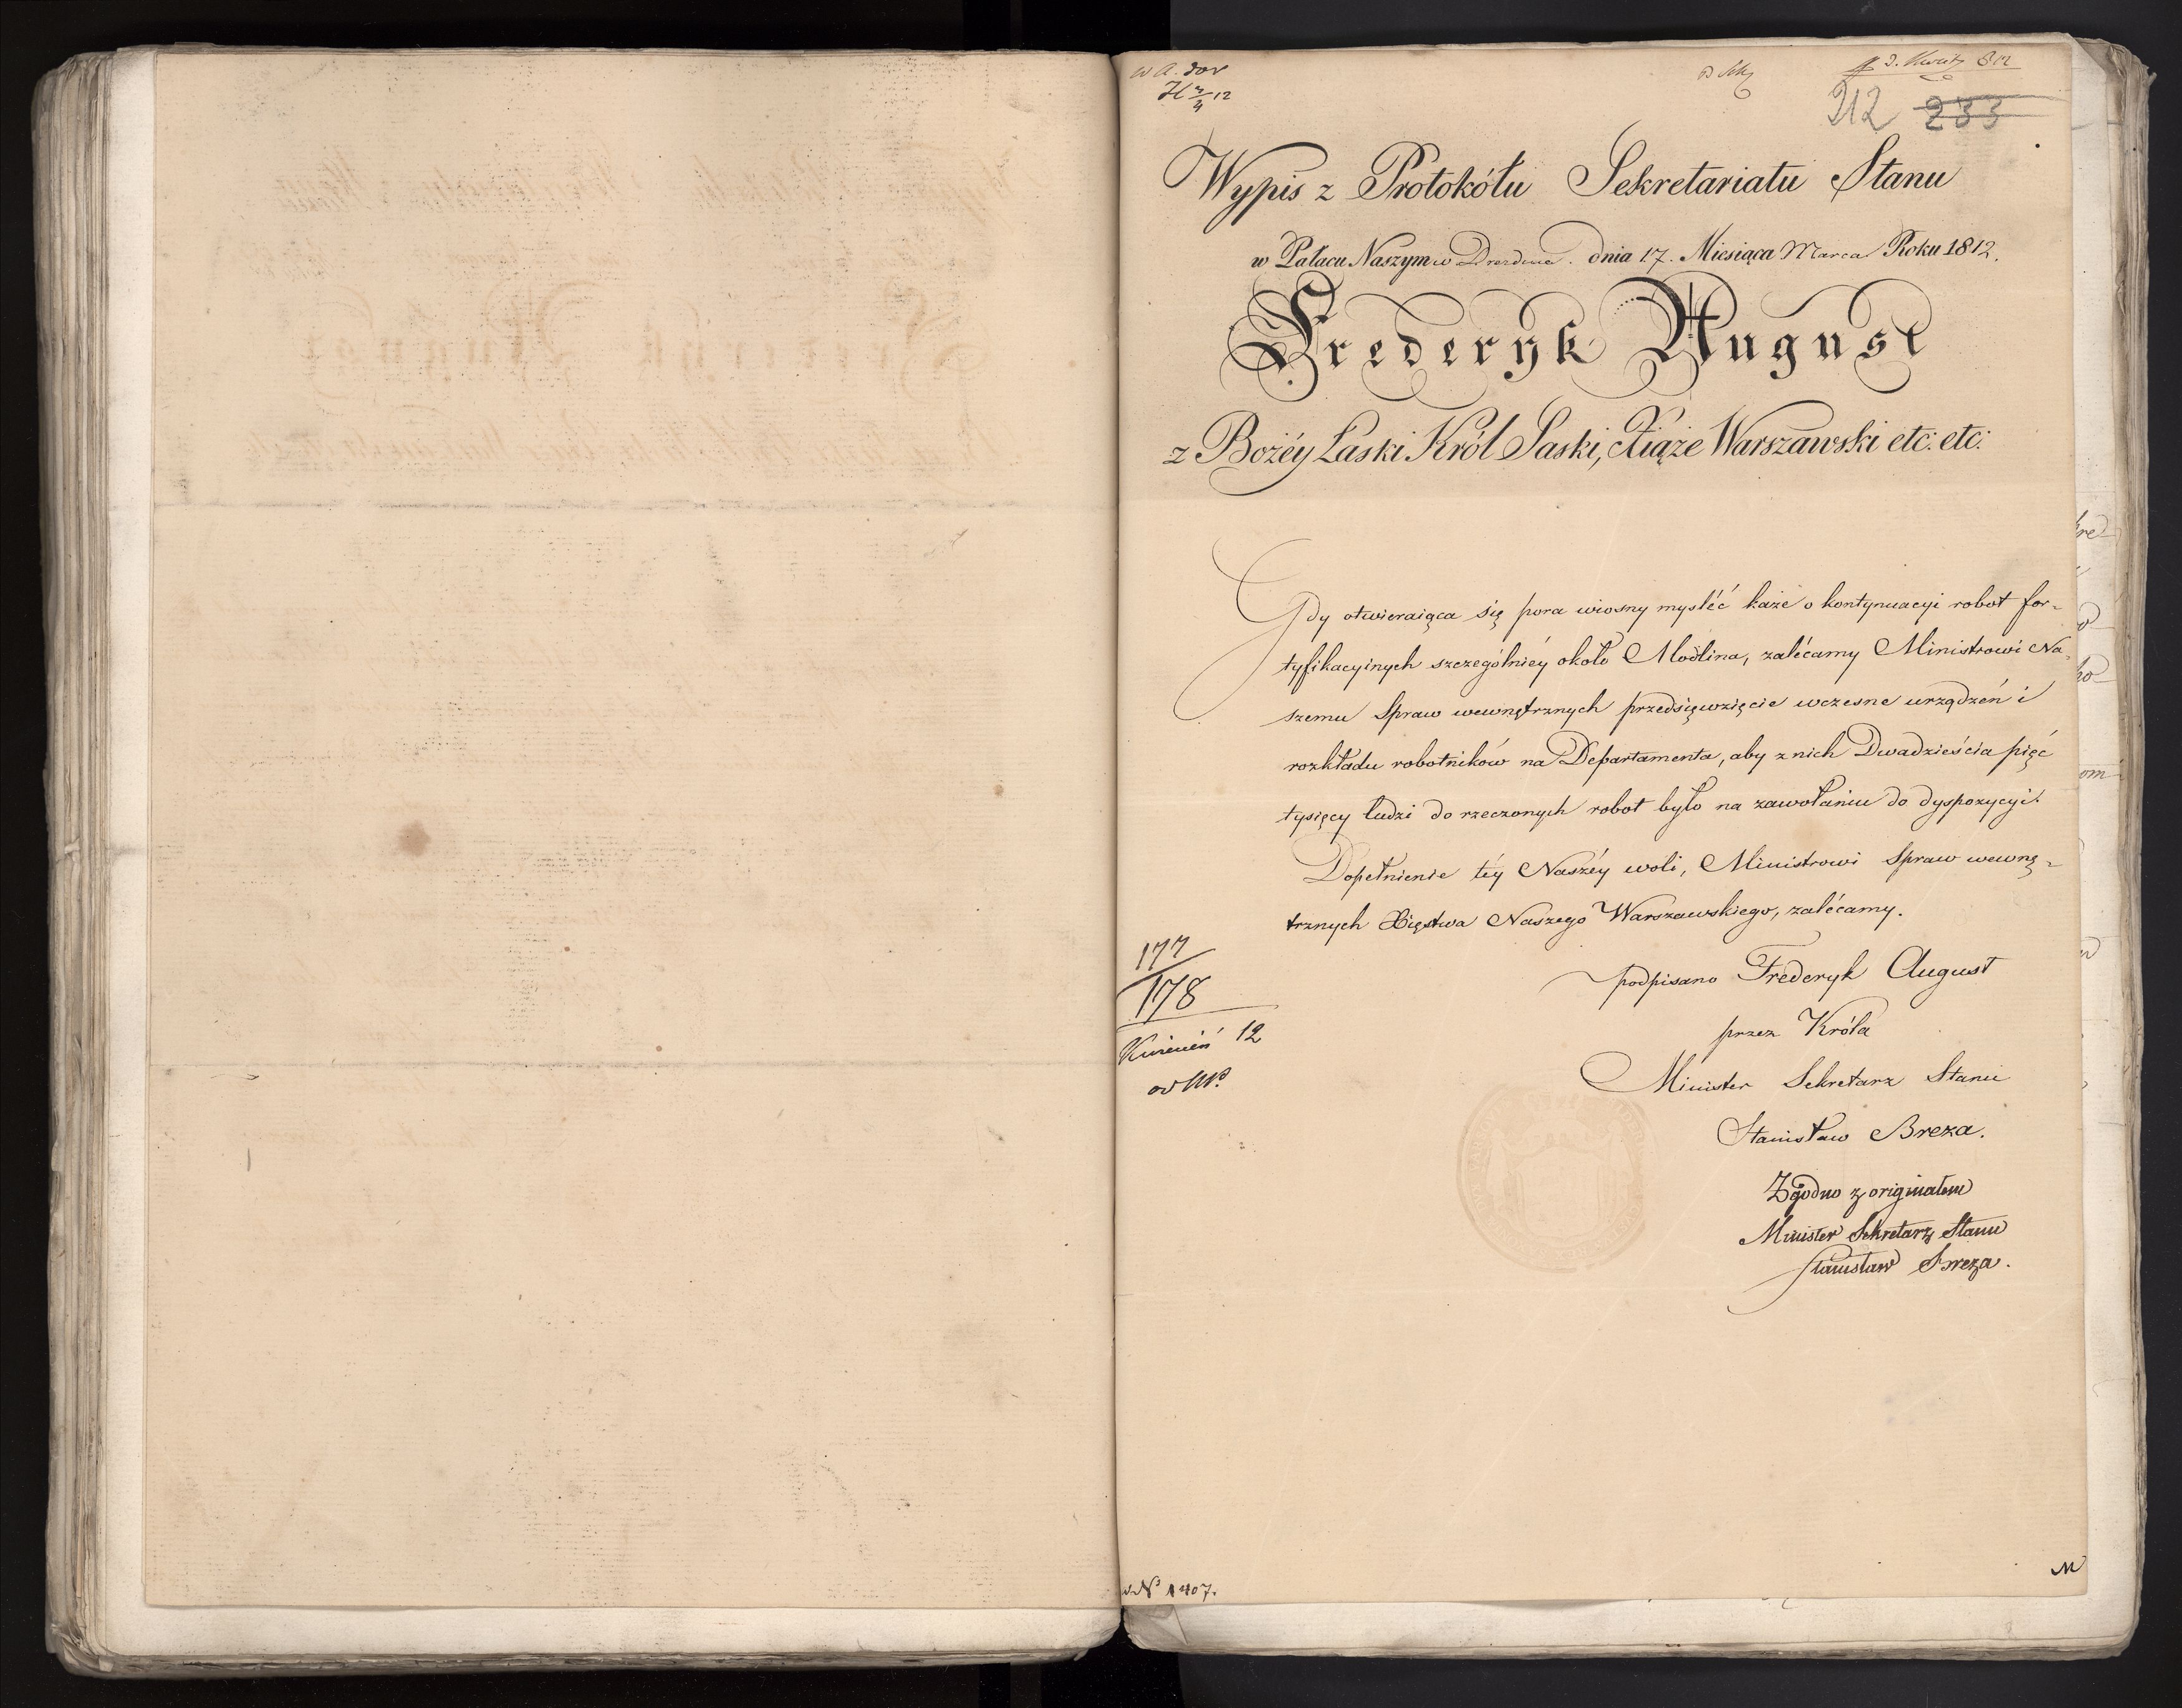 w A. dor
H 3/4 12
3. Kwiet. 812
212 233
Wypis z Protokółu Sekretariatu Stanu
w Pałacu Naszym w Dreznie. dnia 17. Miesiąca Marca Roku 1812.
Frederyk August
z Bożéy Łaski Król Saski, Xiąże Warszawski etc: etc:
Gdy otwieraiąca się pora wiosny mysléć każe o kontynuacyi robot for-
tyfikacyinych szczególniéy około Modlina, zalécamy Ministrowi Na-
szemu Spraw wewnętrznych przedsięwzięcie wczesne urządzeń i
rozkładu robotników na Departamenta, aby z nich Dwadzieścia pięć
tysięcy ludzi do rzeczonych robot było na zawołaniu do dyspozycyi.
Dopełnienie téy Naszéy woli, Ministrowi Spraw wewnę-
trznych Xięstwa Naszego Warszawskiego, zalécamy.
177
178
Kwiecień 12
podpisano Frederyk August
przez Króla
Minister Sekretarz Stanu
Stanisław Breza.
Zgodno z originałem
Minister Sekretarz Stanu
Stanisław Breza.
N° 1407.
M